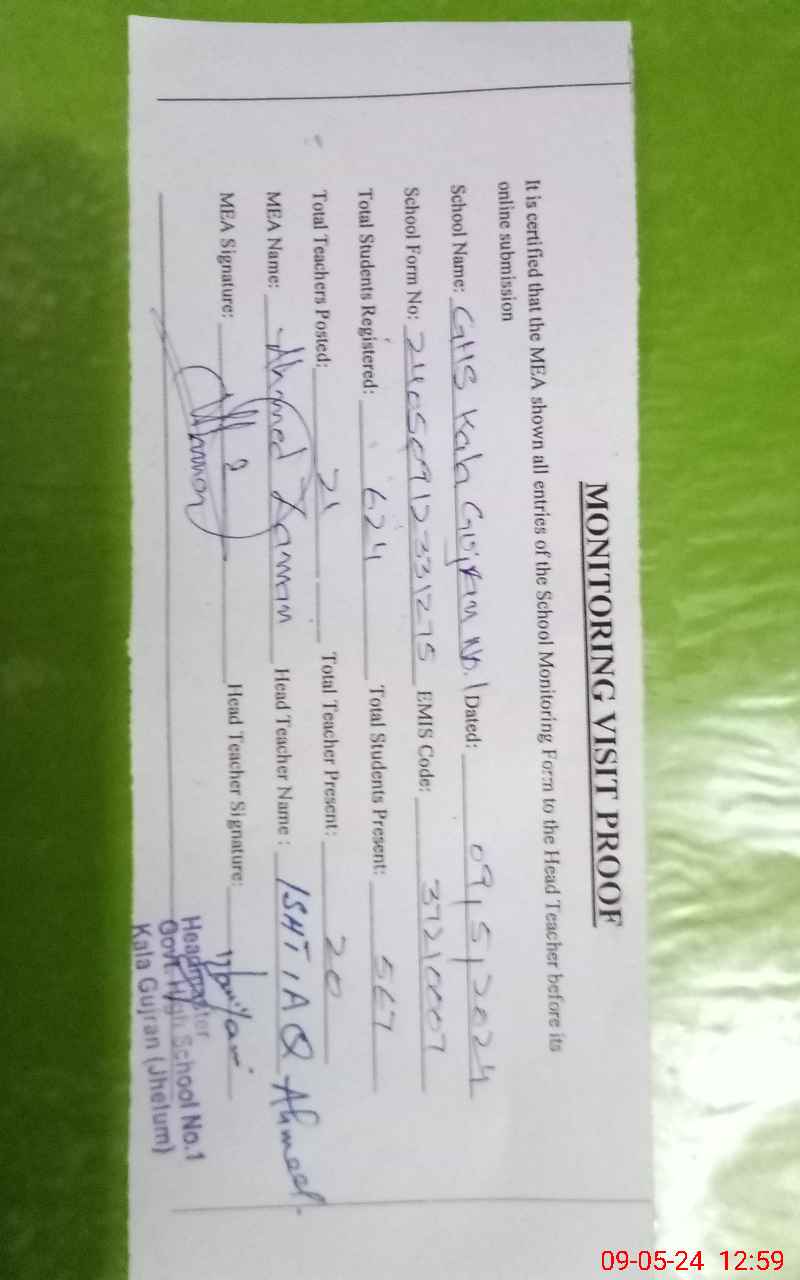 MONITORING VISIT PROOF
It is certified that the MEA shown all entries of the School Monitoring Form to the Head Teacher before its
online submission
School Name: GHS Kala Gujran No.1 Dated: 09,5,2024
School Form No: 24050912331275 EMIS Code: 37210007
Total Students Registered: 624 Total Students Present: 567
Total Teachers Posted: 21 Total Teacher Present: 20
MEA Name: Ahmed Zaman Head Teacher Name : ISHTIAQ Ahmed
MEA Signature: Head Teacher Signature:
Headmaster
Govt. High School No.1
Kala Gujran (Jhelum)
09-05-24 12:59